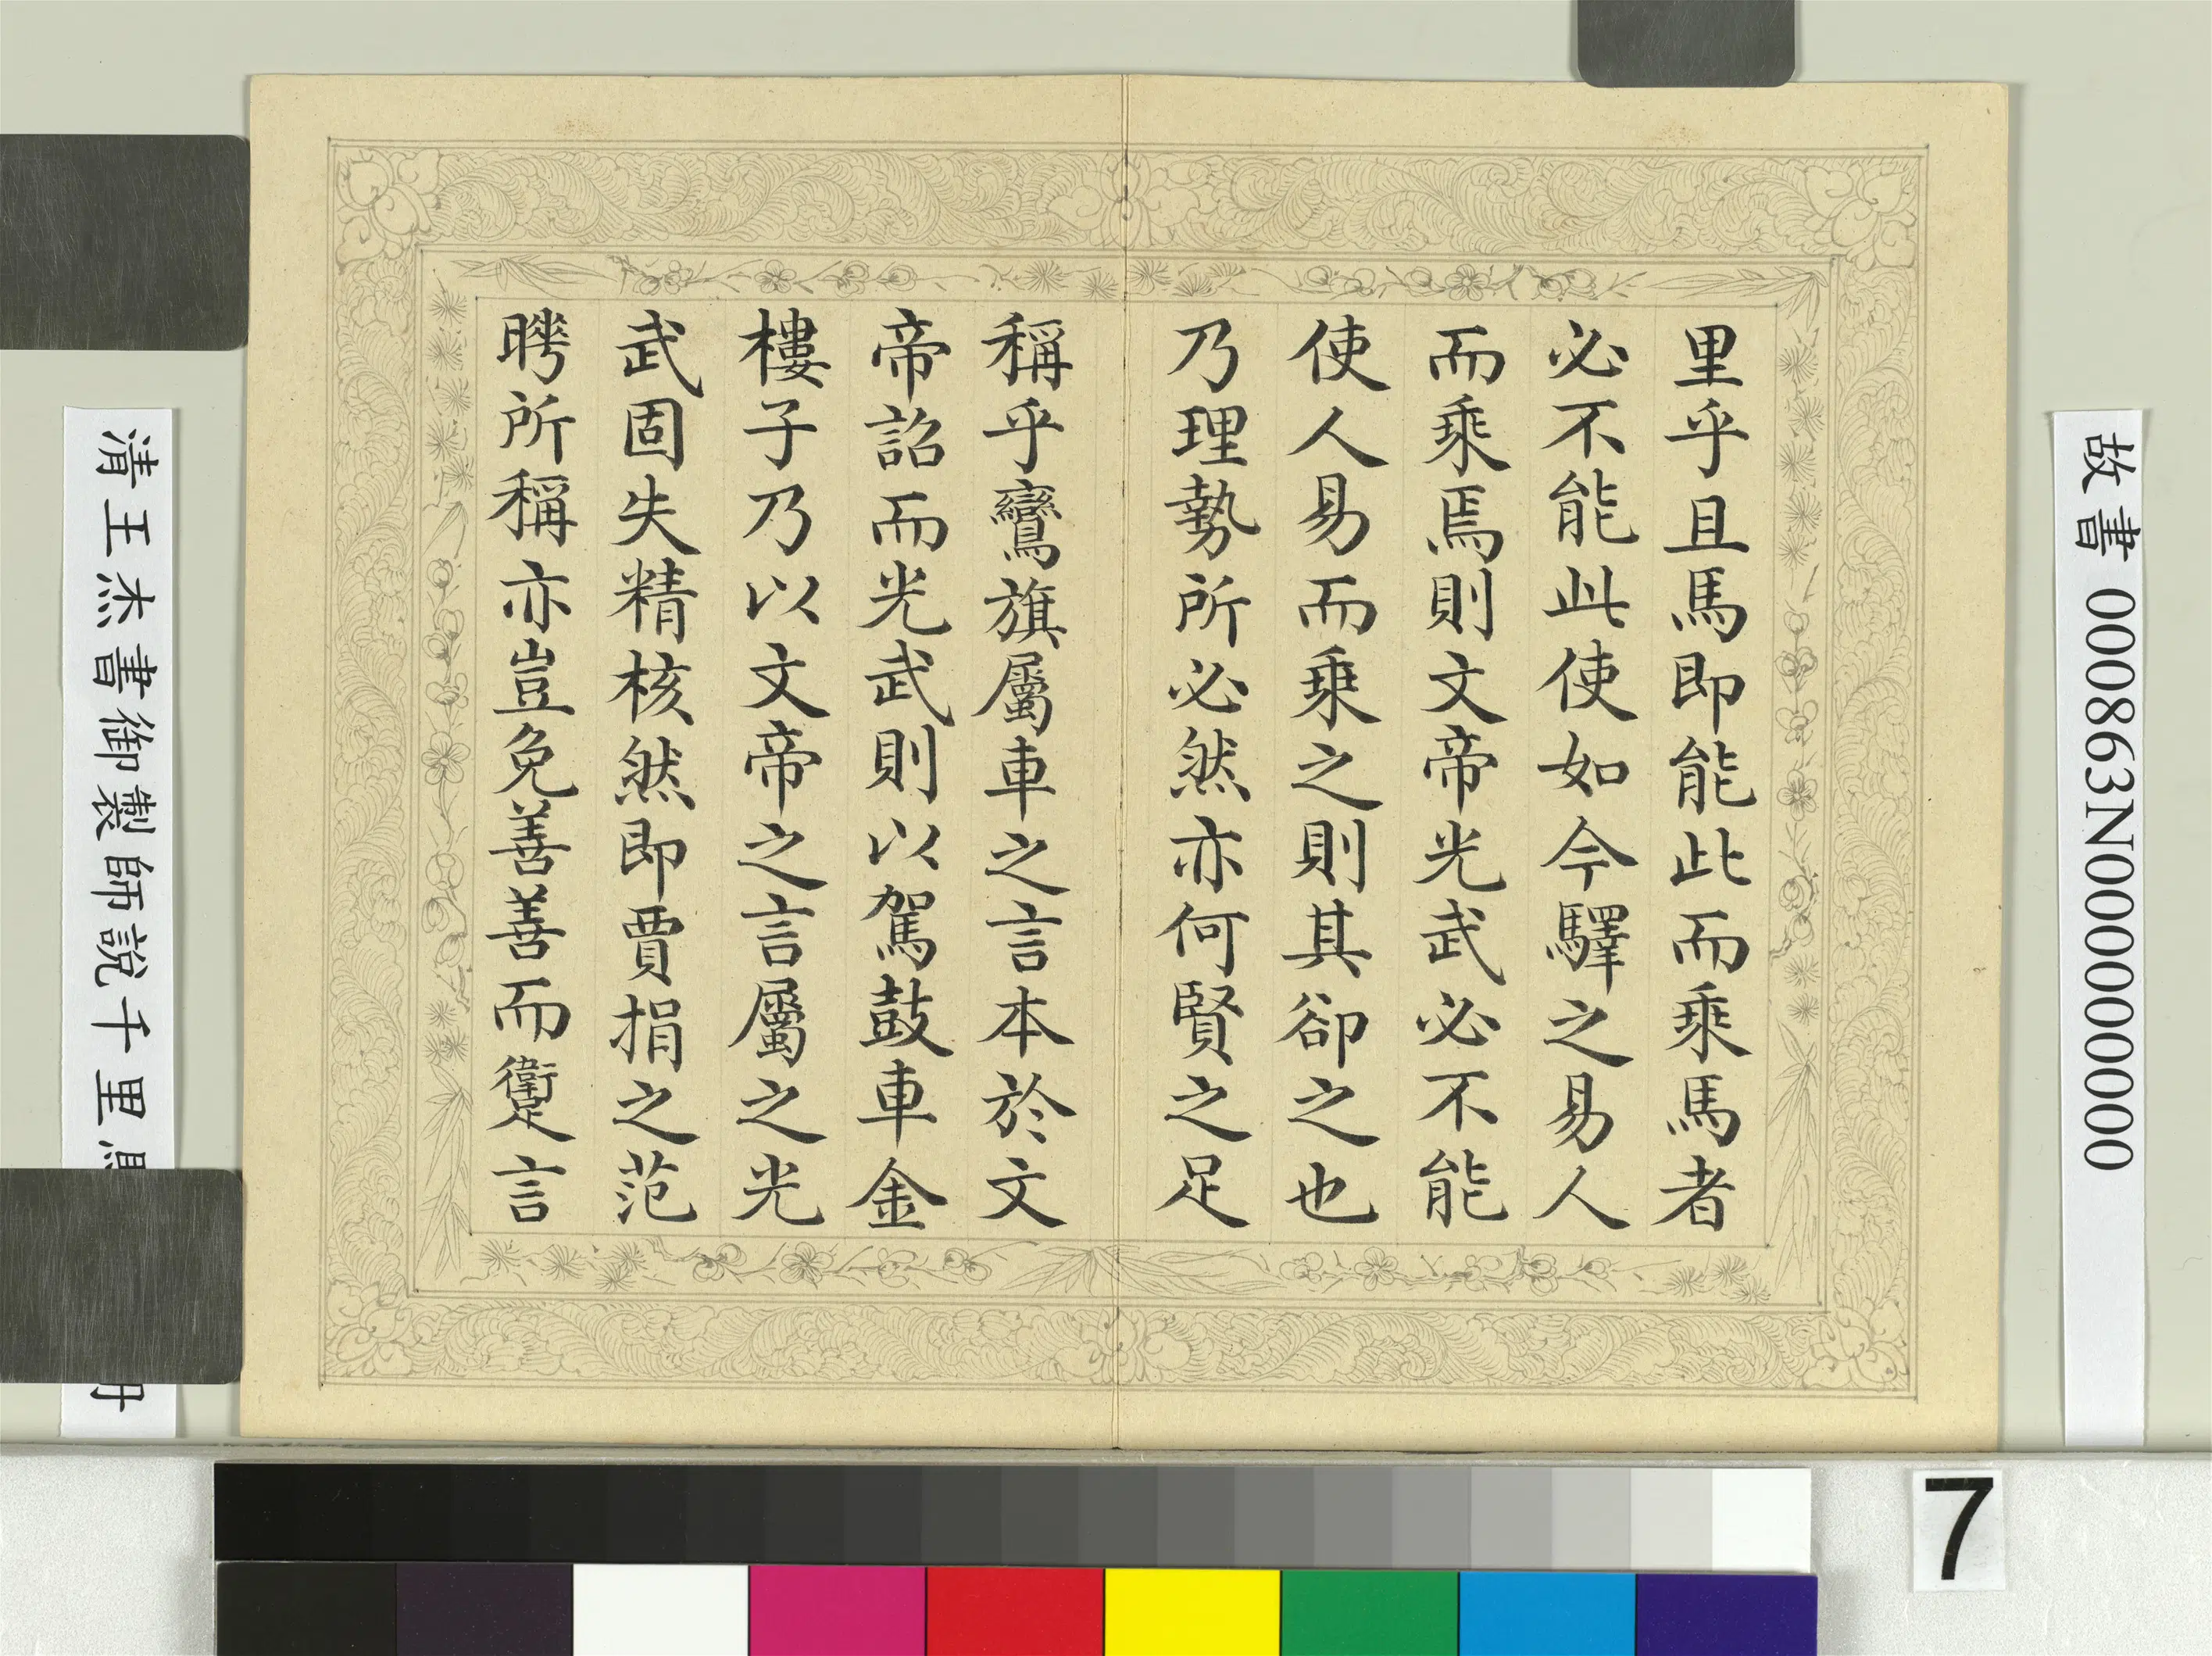 里乎且馬即能此而乘馬者
必不能此使如今驛之易人
而乘焉則文帝光武必不能
使人易而乘之則其卻之也
乃理勢所必然亦何賢之足
稱乎鸞旗屬車之言本於文
帝詔而光武則以駕鼓車金
樓子乃以文帝之言屬之光
武固失精核然即賈捐之范
聘所稱亦豈免善善而躗言
故書 000863N000000000
清王杰書御製師說千里馬
冊
7